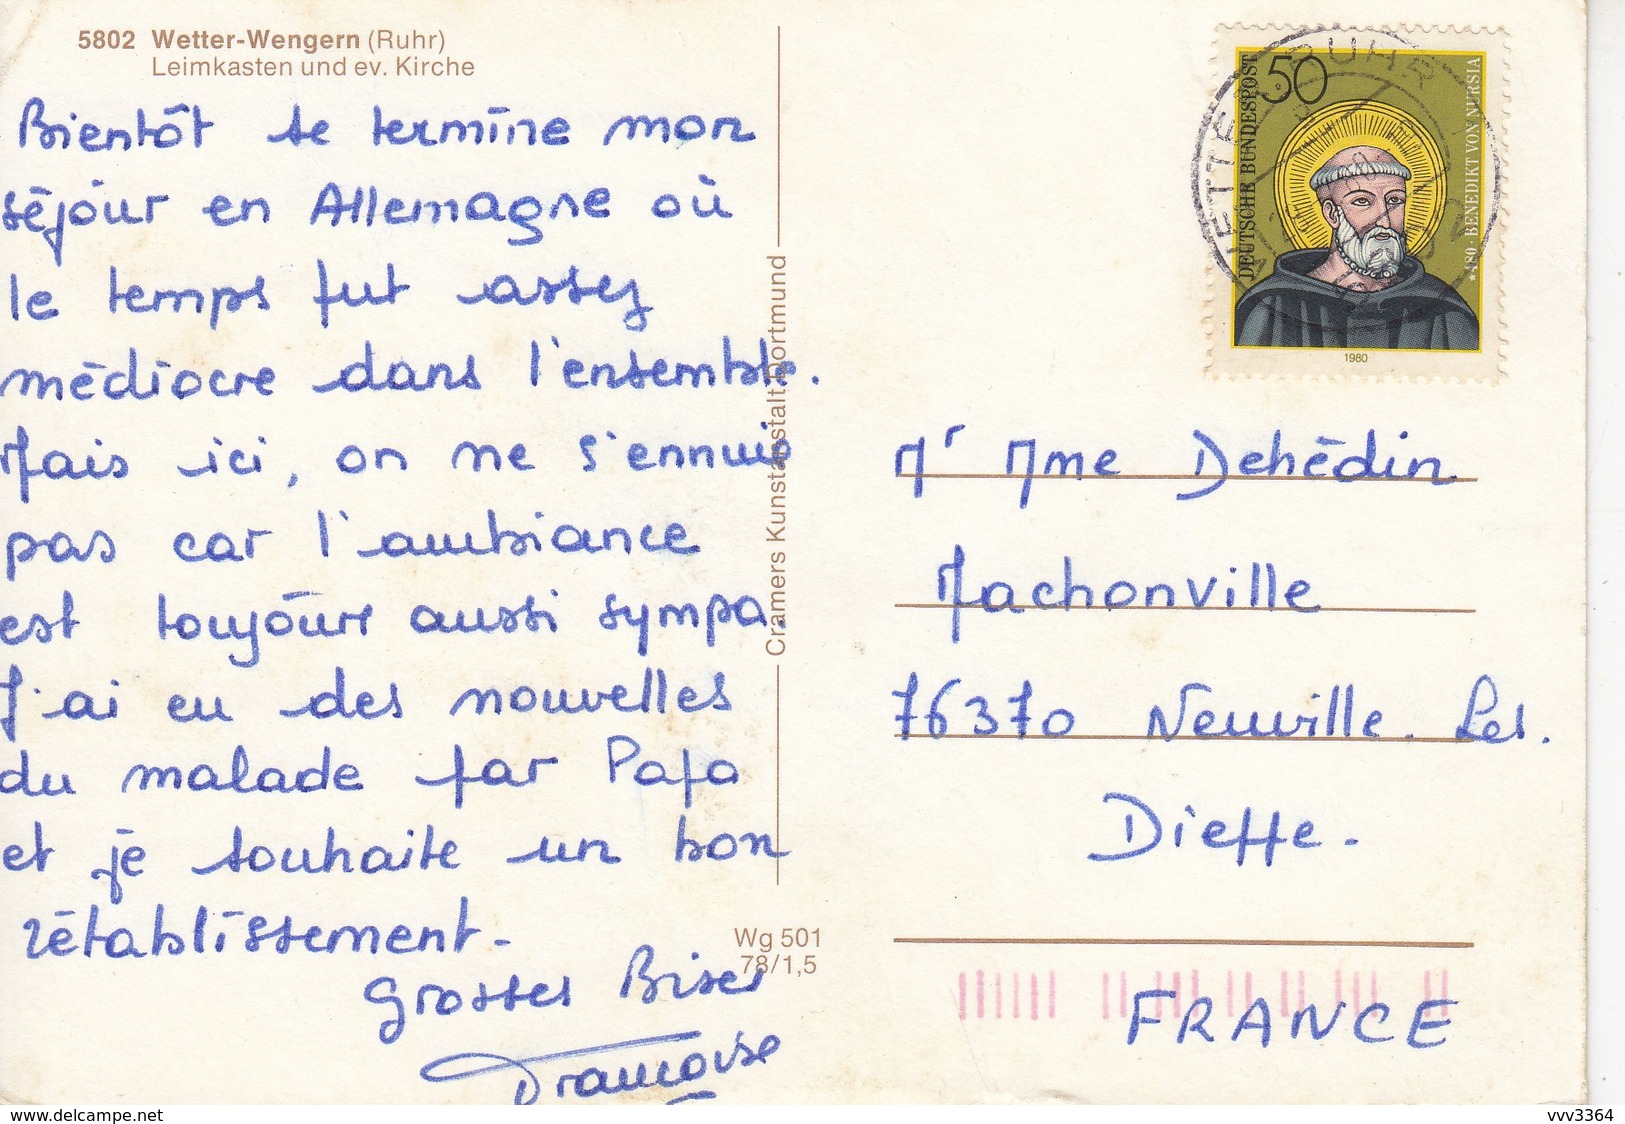 5802 Wetter-Wengern (Ruhr)
Leimkasten und ev. Kirche
Bientôt se termine mon
séjour en Allemagne où
le temps fut assez
médiocre dans l'ensemble.
Mais ici, on ne s'ennuie
pas car l'ambiance
est toujours aussi sympa.
J'ai eu des nouvelles
du malade par Papa
et je souhaite un bon
rétablissement.
Grosses Bises
Françoise
Cramers Kunstanstalt Dortmund
Wg 501
78/1,5
DEUTSCHE BUNDESPOST
50
*480 · BENEDIKT VON NURSIA
1980
WETTER RUHR 1
Mr Mme Dehédin
Machonville
76370 Neuville. Les.
Dieppe.
FRANCE
www.delcampe.net
vvv3364